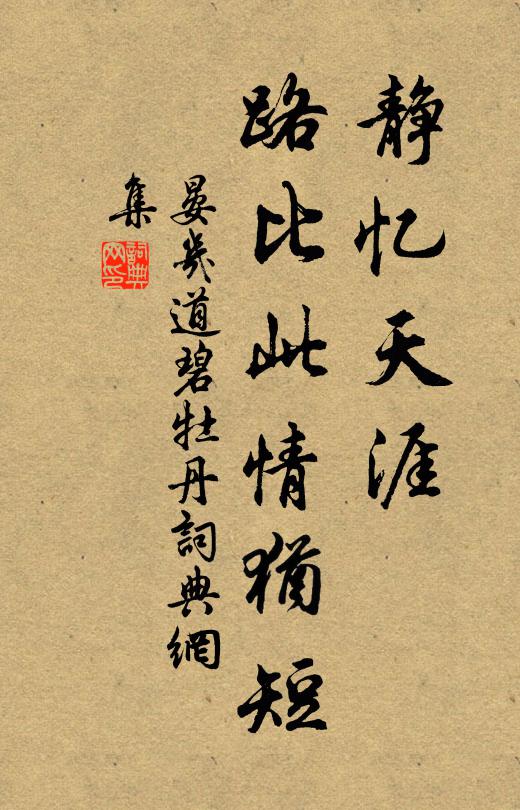 静忆天涯
路比此情猶短
晏幾道碧牡丹詞典網
集
詞典网印